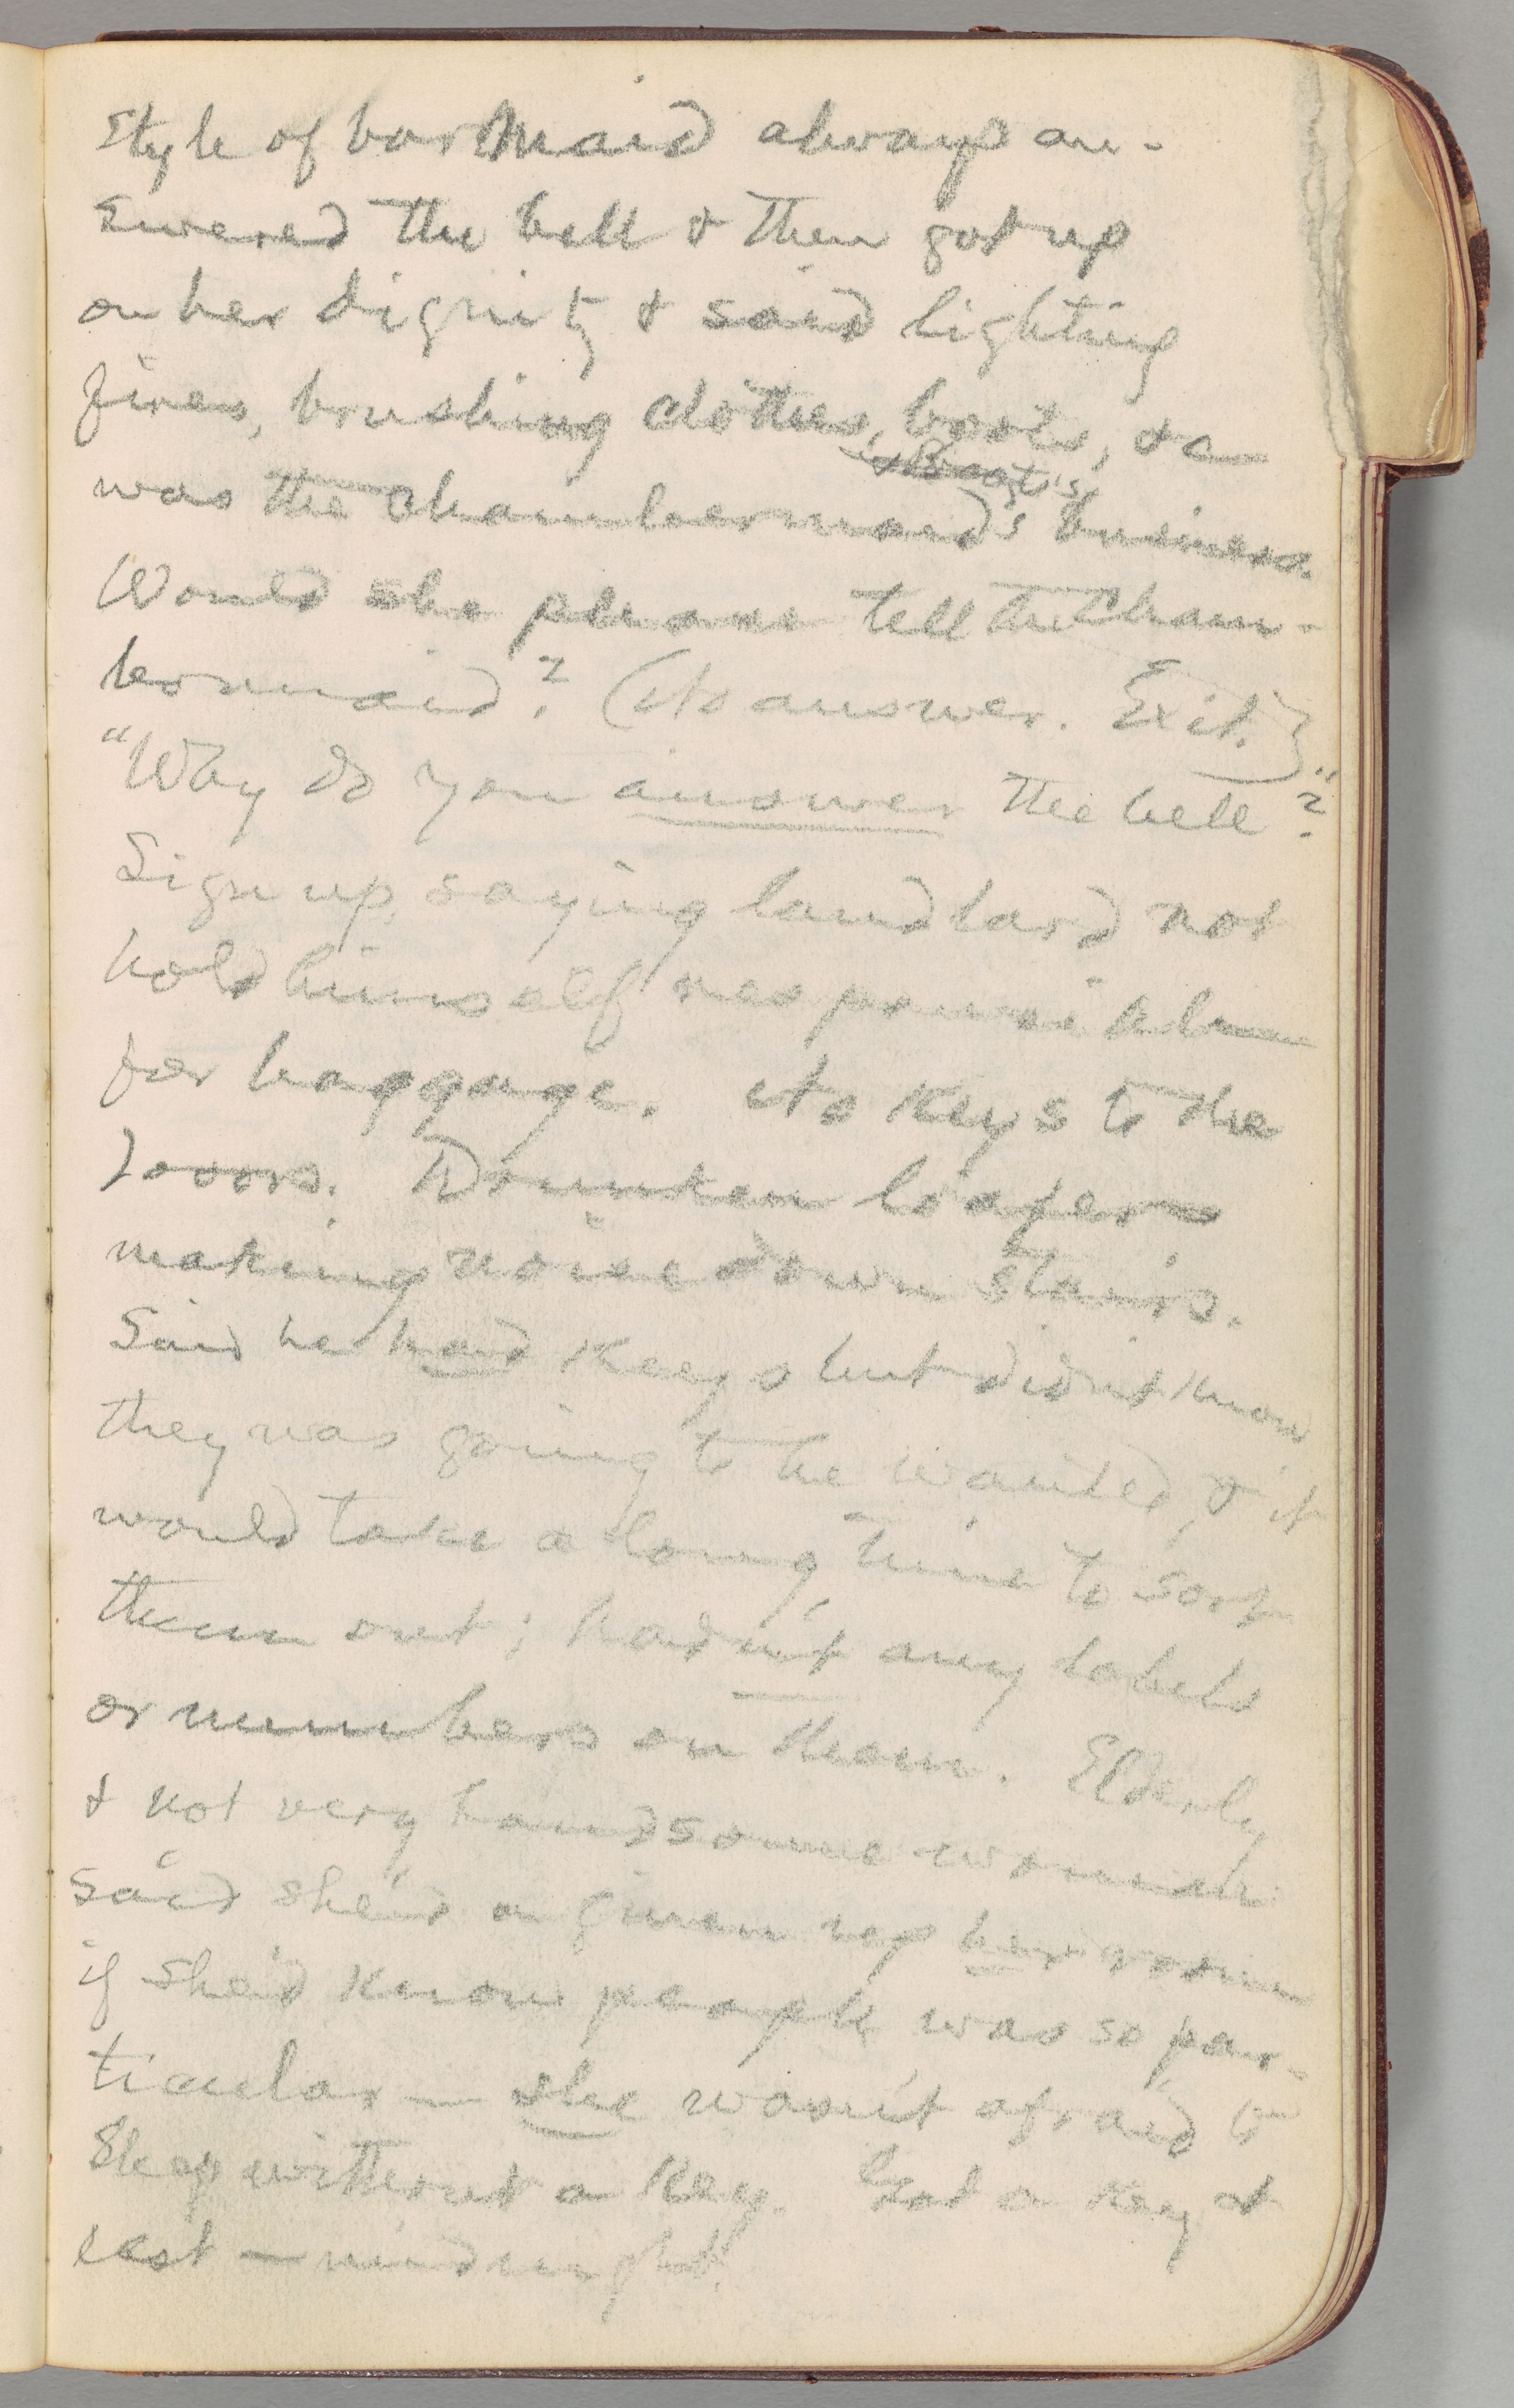 Style of barmaid always an-
swered the bell & then got up
on her dignity & said lighting
fires, brushing clothes, boots, &c
was the chambermaid's business.
Would she please tell the cham-
bermaid? (No answer. Exit.)
"Why do you answer the bell?"
Sign up, saying landlord not
hold himself responsible
for baggage. No keys to the
doors. Drunken loafers
making noise down stairs.
Said he had keys but didn't know
they was going to be wanted, & it
would take a long time to sort
them out; hadn't any labels
or numbers on them. Elderly
& not very handsome woman
said she'd a given up her room
if she'd know people was so par-
ticular — she wasn't afraid to
sleep without a key. Got a key at
last — midnight.